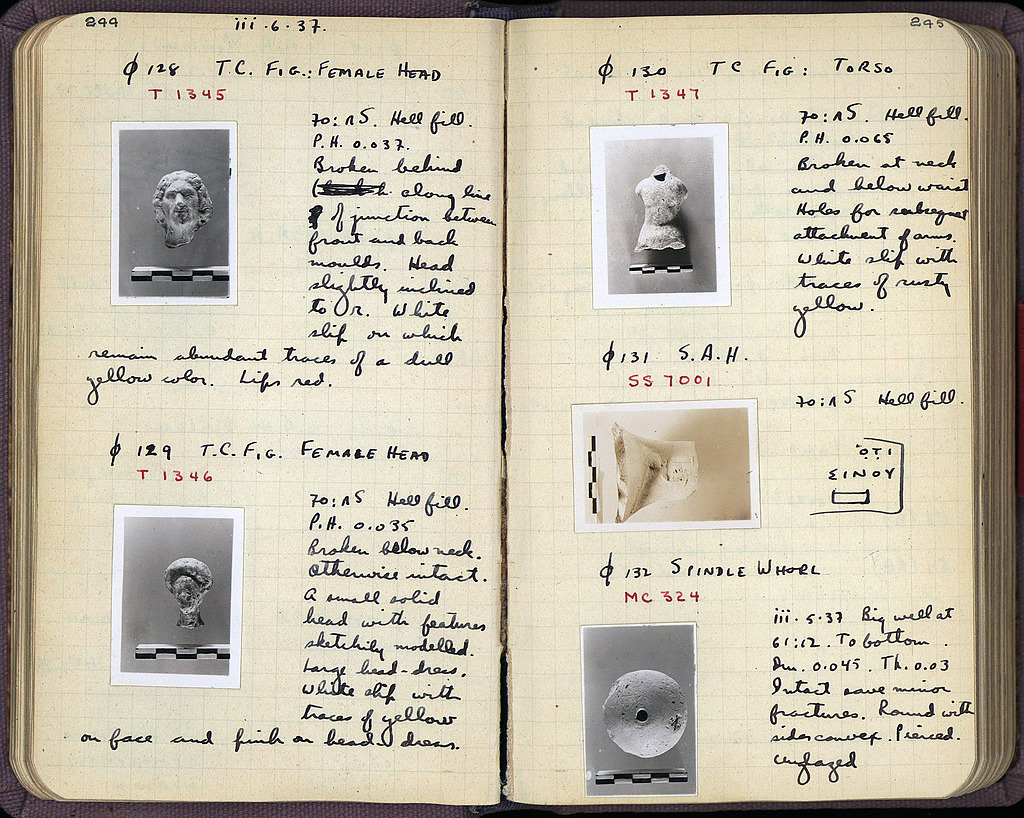 244
iii·6·37.
ϕ 128 T.C. FIG.: FEMALE HEAD
T 1345
70: ΛS. Hell fill.
P.H. 0.037.
Broken behind
along line
of junction between
front and back
moulds. Head
slightly inclined
to r. White
slip on which
remain abundant traces of a dull
yellow color. Lips red.
ϕ 129 T.C. FIG. FEMALE HEAD
T 1346
70: ΛS Hell fill.
P.H. 0.035
Broken below neck.
Otherwise intact.
A small solid
head with features
sketchily modelled.
Large head-dress.
White slip with
traces of yellow
on face and pink on head dress.
245
ϕ 130 TC FIG: TORSO
T 1347
70: ΛS. Hell fill.
P.H. 0.065
Broken at neck
and below waist
Holes for subsequent
attachment of arms.
White slip with
traces of rusty
yellow.
ϕ 131 S.A.H.
SS 7001
70: ΛS Hell fill.
ΟΤΙ
ΣΙΝΟΥ
ϕ 132 SPINDLE WHORL
MC 324
iii·5·37 Big well at
61:12. To bottom.
Dm. 0.045. Th. 0.03
Intact save minor
fractures. Round with
sides convex. Pierced.
Unglazed